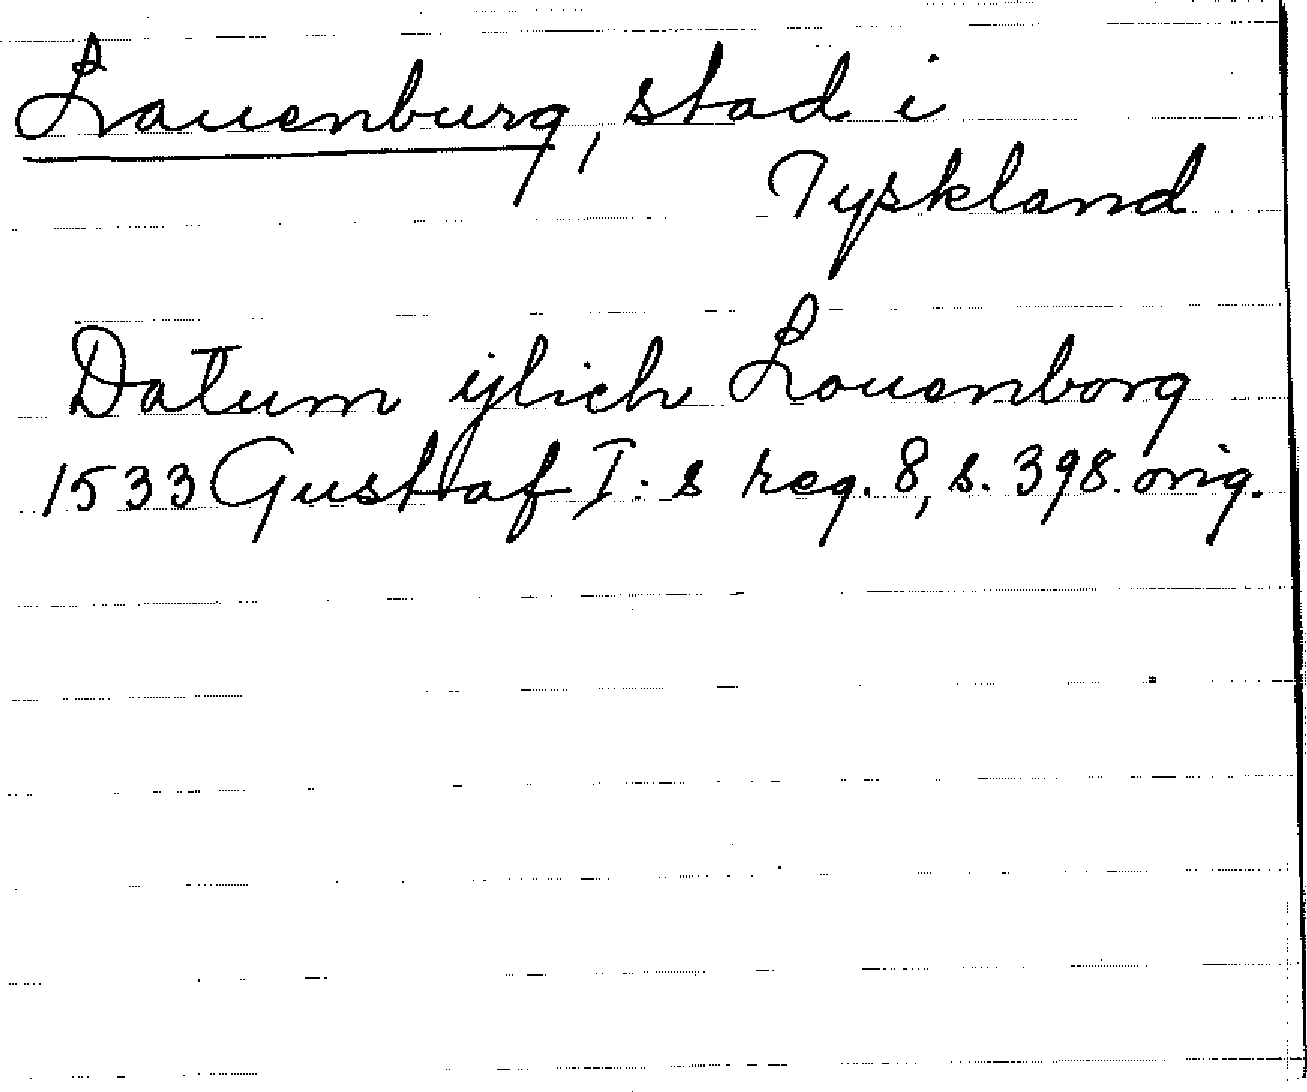 Lauenburg, stad i
Tyskland
Datum ijlich Louenborg
1533 Gustaf I:s reg. 8, s. 398. orig.